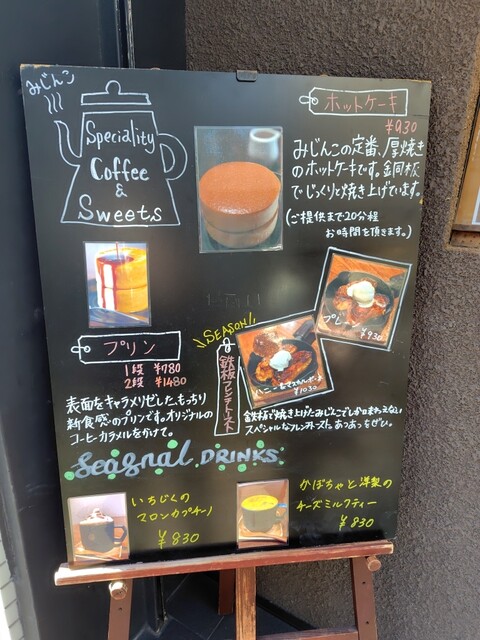 みじんこ
Speciality
Coffee
&
Sweets
ホットケーキ
¥930
みじんこの定番、厚焼き
のホットケーキです。銅板
でじっくりと焼き上げています。
(ご提供まで20分程
お時間を頂きます。)
プリン
1段 ¥780
2段 ¥1480
表面をキャラメリゼした、もっちり
新食感のプリンです。オリジナルの
コーヒーカラメルをかけて。
SEASON!
鉄板フレンチトースト
プレーン
¥930
¥1030
鉄板で焼き上げたみじんこでしか味わえない
スペシャルなフレンチトースト。あつあつをぜひ。
Seasnal DRINKS
いちじくの
マロンカプチーノ
¥830
かぼちゃと洋梨の
チーズミルクティー
¥830